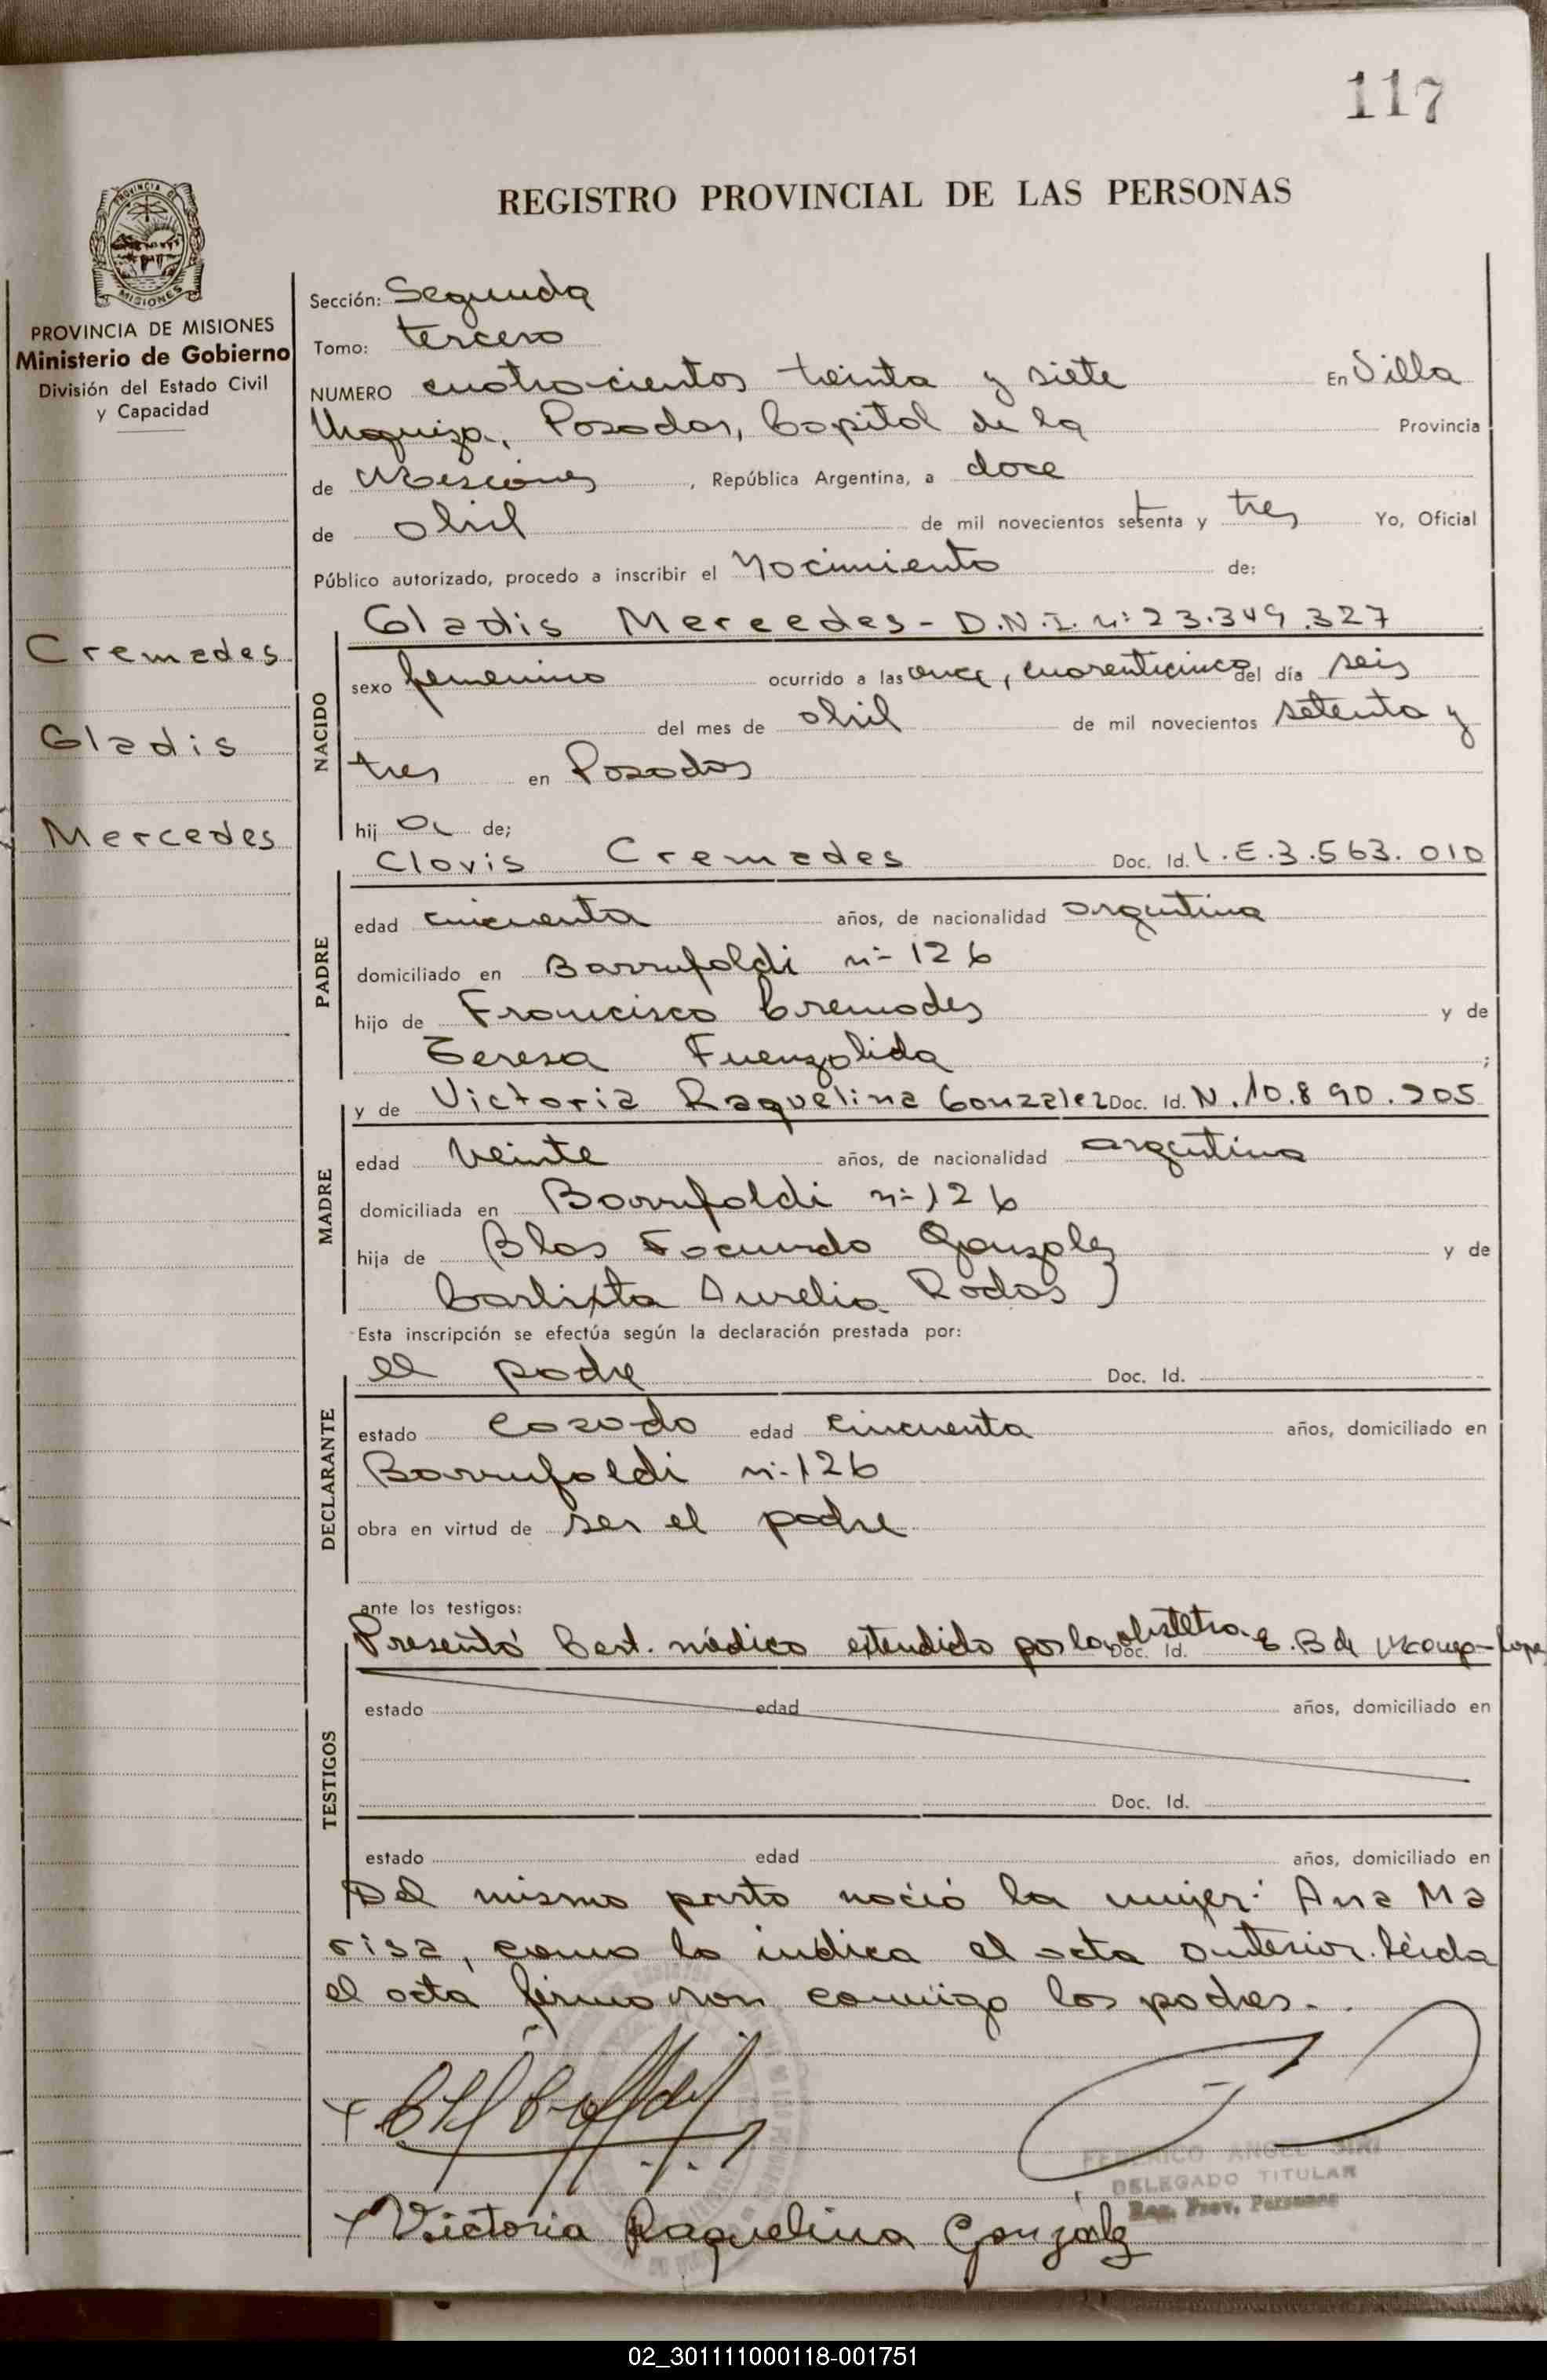 117
REGISTRO PROVINCIAL DE LAS PERSONAS
PROVINCIA DE MISIONES
PROVINCIA DE MISIONES
Ministerio de Gobierno
División del Estado Civil
y Capacidad
Cremades
Gladis
Mercedes
Sección: Segunda
Tomo: tercero
NUMERO cuatrocientos treinta y siete En Villa
Urquiza, Posadas, Capital de la Provincia
de Misiones, República Argentina, a doce
de abril de mil novecientos setenta y tres Yo, Oficial
Público autorizado, procedo a inscribir el Nacimiento de:
NACIDO
Gladis Mercedes - D.N.I. nº 23.349.327
sexo femenino ocurrido a las once, cuarenticinco del día seis
del mes de abril de mil novecientos setenta y
tres en Posadas
hij a de;
PADRE
Clovis Cremades Doc. Id. L.E.3.563.010
edad cincuenta años, de nacionalidad argentina
domiciliado en Barrufaldi nº 126
hijo de Francisco Cremades y de
Teresa Fuenzalida ;
MADRE
y de Victoria Raquelina Gonzalez Doc. Id. N. 10.890.205
edad veinte años, de nacionalidad argentina
domiciliada en Barrufaldi nº 126
hija de Blas Facundo Gonzalez y de
Carlixta Aurelia Rodas
Esta inscripción se efectúa según la declaración prestada por:
DECLARANTE
el padre Doc. Id.
estado casado edad cincuenta años, domiciliado en
Barrufaldi nº 126
obra en virtud de ser el padre
ante los testigos:
TESTIGOS
Presentó Cert. médico extendido por la obstetra E. B de Doc. Id.
estado edad años, domiciliado en
Doc. Id.
estado edad años, domiciliado en
Del mismo parto nació la mujer: Ana Ma
risa, como lo indica el acta anterior. Leída
el acta firmaron conmigo los padres.
FEDERICO ANGEL SIRI
DELEGADO TITULAR
Reg. Prov. Personas
Victoria Raquelina Gonzalez
02_301111000118-001751